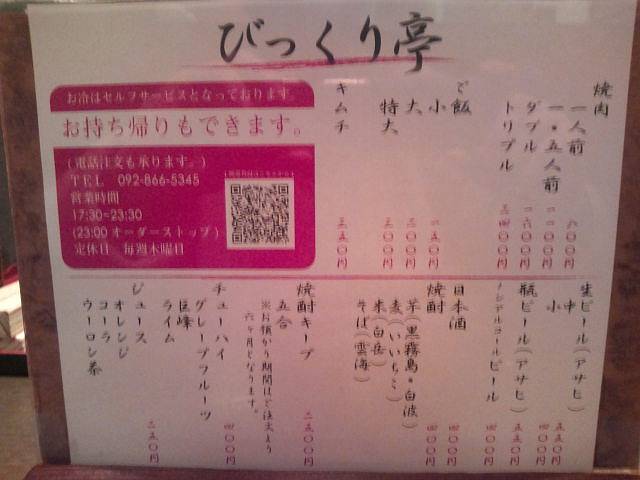 びっくり亭
お冷はセルフサービスとなっております。
お持ち帰りもできます。
(電話注文も承ります。)
TEL 092-866-5345
営業時間
17:30~23:30
(23:00 オーダーストップ)
定休日 毎週木曜日
焼肉
一人前 八〇〇円
一・五人前 一二〇〇円
ダブル 一六〇〇円
トリプル 二四〇〇円
ご飯
小
大
特大
キムチ
生ビール(アサヒ)
中 五五〇円
小 四〇〇円
瓶ビール(アサヒ) 五五〇円
ノンアルコールビール 四〇〇円
日本酒 四〇〇円
焼酎 四〇〇円
芋(黒霧島・白波)
麦(いいちこ)
米(白岳)
そば(雲海)
焼酎キープ
五合
※お預かり期間はご注文より
六ヶ月となります。
チューハイ 四〇〇円
グレープフルーツ
巨峰
ライム
ジュース
オレンジ
コーラ
ウーロン茶